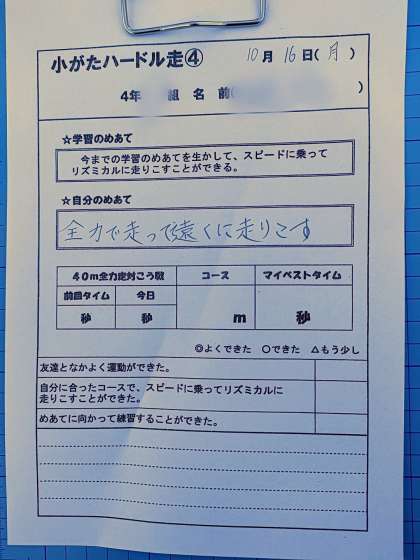 小がたハードル走④ 10月16日(月)
4年 組 名前( )
☆学習のめあて
今までの学習のめあてを生かして、スピードに乗って
リズミカルに走りこすことができる。
☆自分のめあて
全力で走って遠くに走りこす
40m全力走対こう戦 コース マイベストタイム
前回タイム 今日
秒 秒 m 秒
◎よくできた ○できた △もう少し
友達となかよく運動ができた。
自分に合ったコースで、スピードに乗ってリズミカルに
走りこすことができた。
めあてに向かって練習することができた。